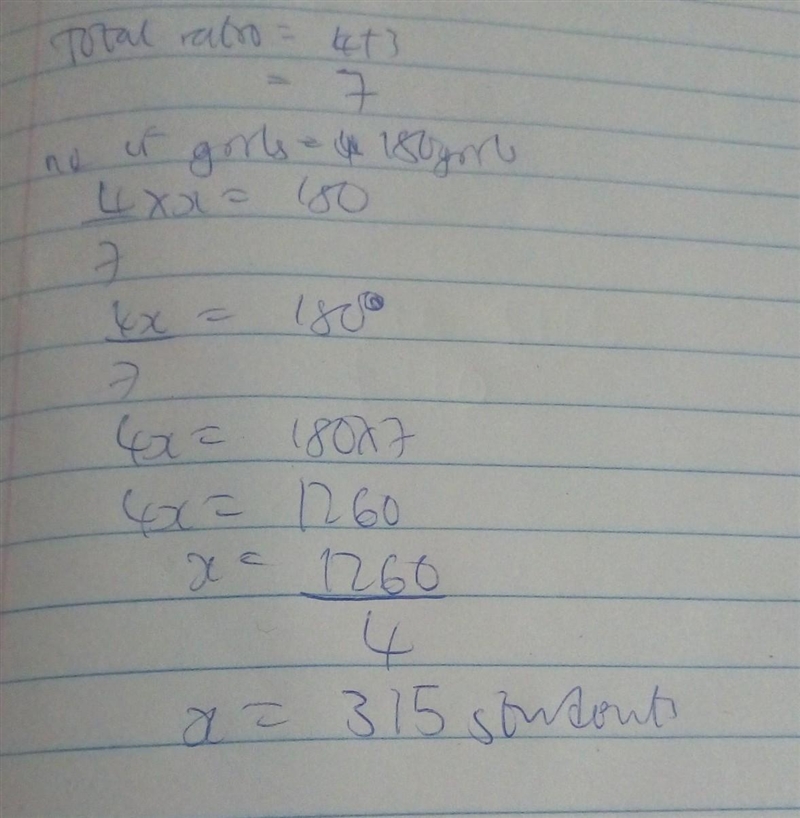 Total ratio = 4+3
= 7
no of girls = 180 girls
4 × x = 180
7
4x = 180
7
4x = 180×7
4x = 1260
x = 1260
4
x = 315 students